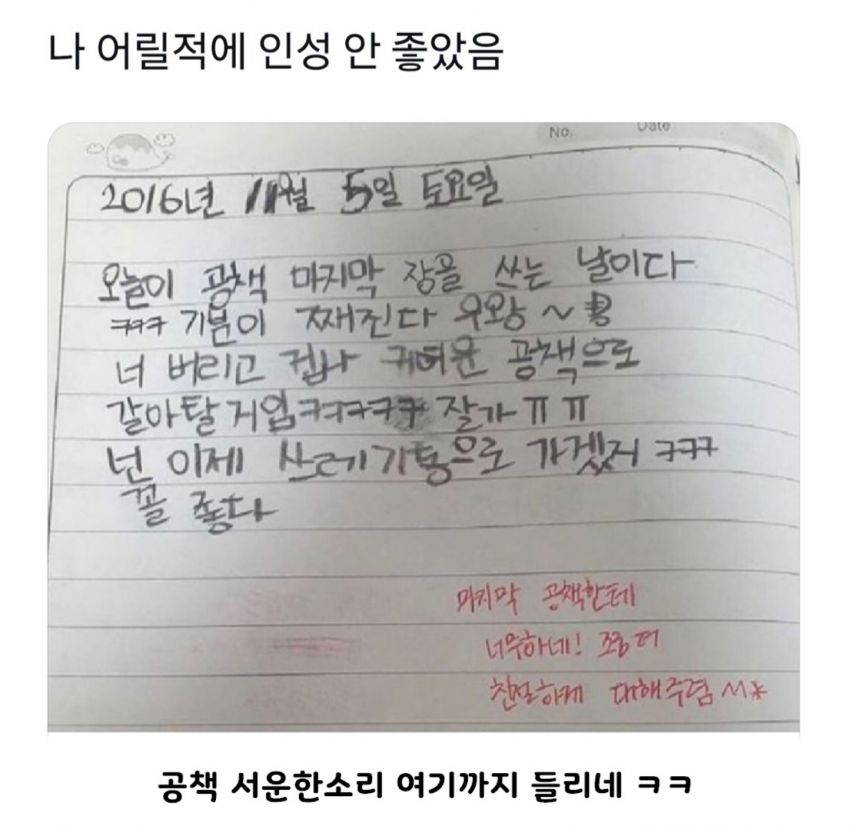 나 어릴적에 인성 안 좋았음
No.
Date
2016년 11월 5일 토요일
오늘이 공책 마지막 장을 쓰는 날이다
ㅋㅋㅋ 기분이 째진다 우와앙~
너 버리고 겁나 귀여운 공책으로
갈아탈거임ㅋㅋㅋㅋㅋ 잘가 ㅠㅠ
넌 이제 쓰레기통으로 가겠지 ㅋㅋㅋ
꼴 좋다
마지막 공책한테
너무하네! 좀 더
친절하게 대해주렴 ^^*
공책 서운한소리 여기까지 들리네 ㅋㅋ